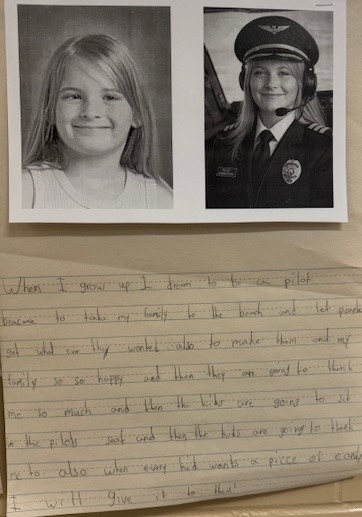 When I grow up I dream to be an pilot
became to take my family to the beach and let people
get what ever they wonted also to make them and my
family so so happy and then they are going to thank
me so much and then the kids are going to sit
in the pilots seat and then the kids are going to thank
me to also when every kid wants a piece of candy
I will give it to their